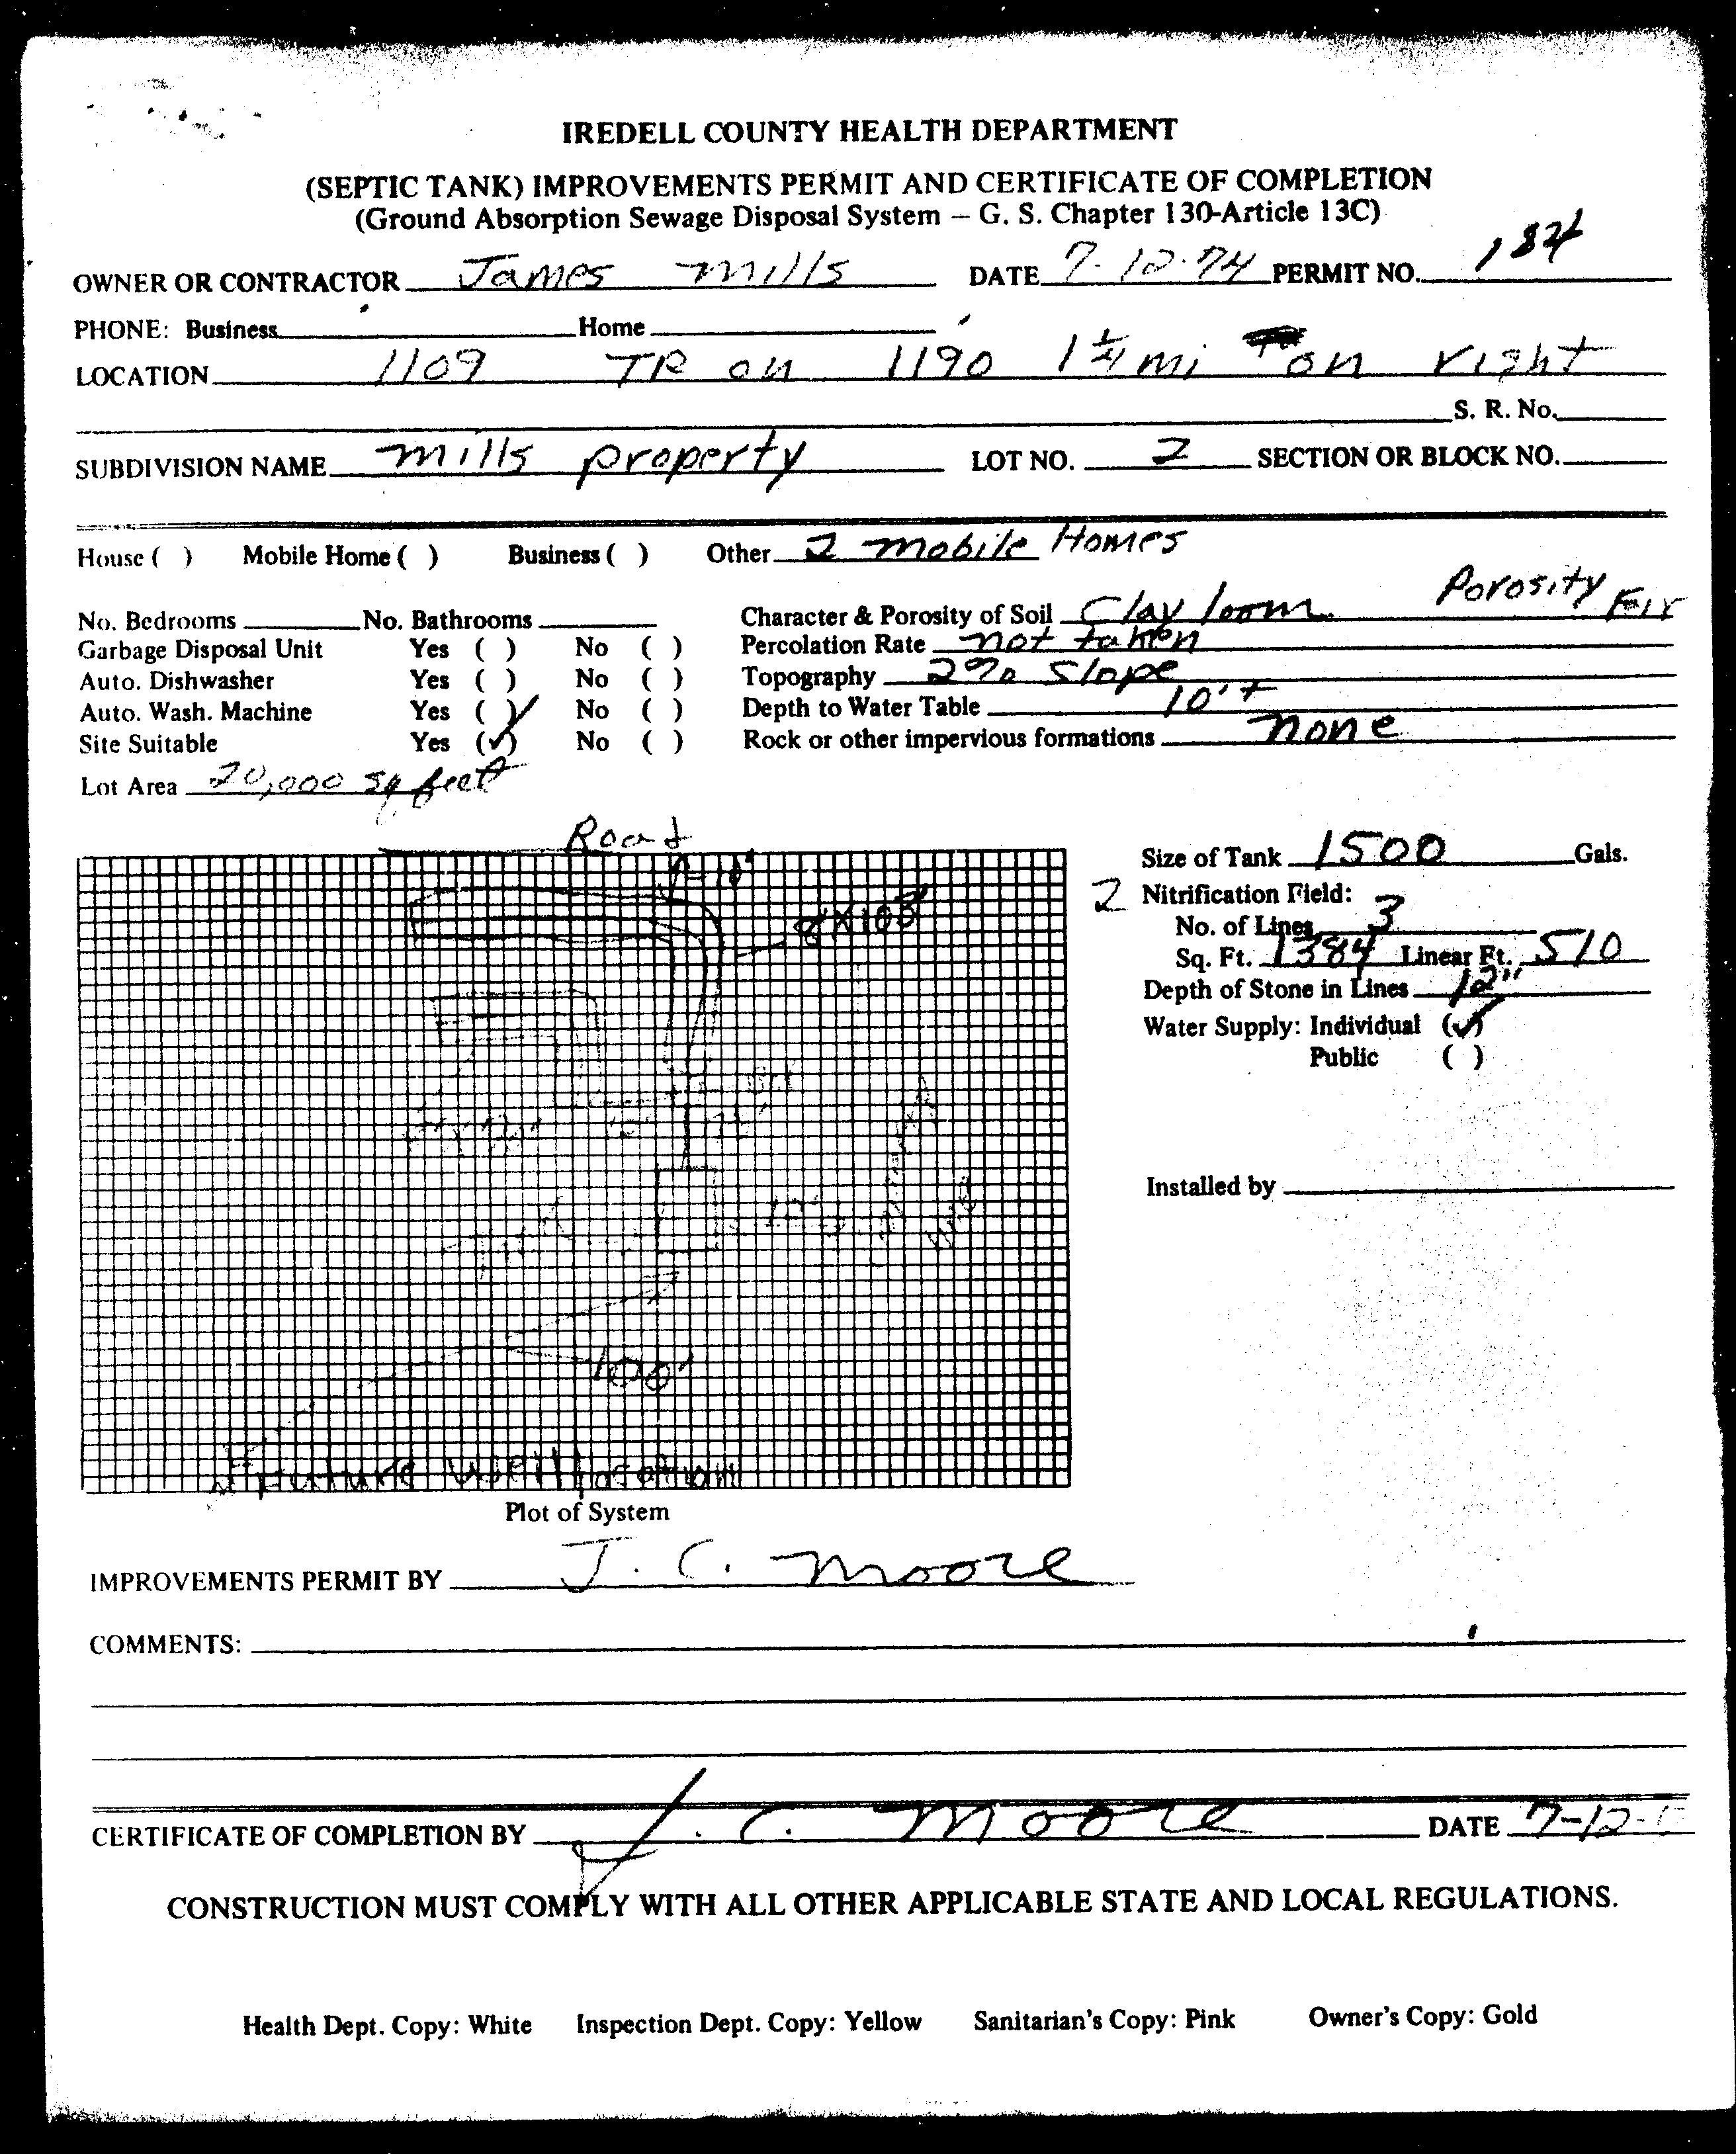 IREDELL COUNTY HEALTH DEPARTMENT
(SEPTIC TANK) IMPROVEMENTS PERMIT AND CERTIFICATE OF COMPLETION
(Ground Absorption Sewage Disposal System – G. S. Chapter 130-Article 13C)
OWNER OR CONTRACTOR James Mills DATE 7-12-74 PERMIT NO. 184
PHONE: Business Home
LOCATION 1109 TR on 1190 1 1/4 mi on right
S. R. No.
SUBDIVISION NAME Mills property LOT NO. 2 SECTION OR BLOCK NO.
House ( ) Mobile Home ( ) Business ( ) Other 2 mobile Homes
No. Bedrooms No. Bathrooms Character & Porosity of Soil Clay loom Porosity
Garbage Disposal Unit Yes ( ) No ( ) Percolation Rate not taken
Auto. Dishwasher Yes ( ) No ( ) Topography 2% Slope
Auto. Wash. Machine Yes (✓) No ( ) Depth to Water Table 10'+
Site Suitable Yes (✓) No ( ) Rock or other impervious formations none
Lot Area 20,000 sq feet
Road
Size of Tank 1500 Gals.
10'
2 Nitrification Field:
No. of Lines 3
Sq. Ft. 1384 Linear Ft. 510
Depth of Stone in Lines 12"
Water Supply: Individual (✓)
Public ( )
Installed by
100'
Future well location
Plot of System
IMPROVEMENTS PERMIT BY J. C. Moore
COMMENTS:
CERTIFICATE OF COMPLETION BY J. C. Moore DATE 7-12-
CONSTRUCTION MUST COMPLY WITH ALL OTHER APPLICABLE STATE AND LOCAL REGULATIONS.
Health Dept. Copy: White Inspection Dept. Copy: Yellow Sanitarian's Copy: Pink Owner's Copy: Gold